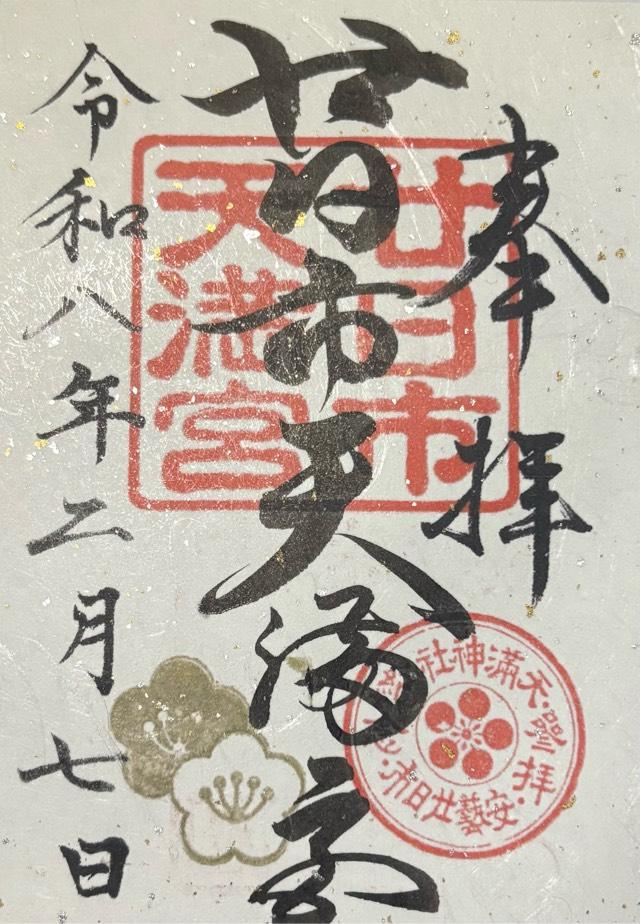 奉拝
廿日市天満宮
令和八年二月七日
廿日市
天満宮
天満神社
登拝
安藝廿日市